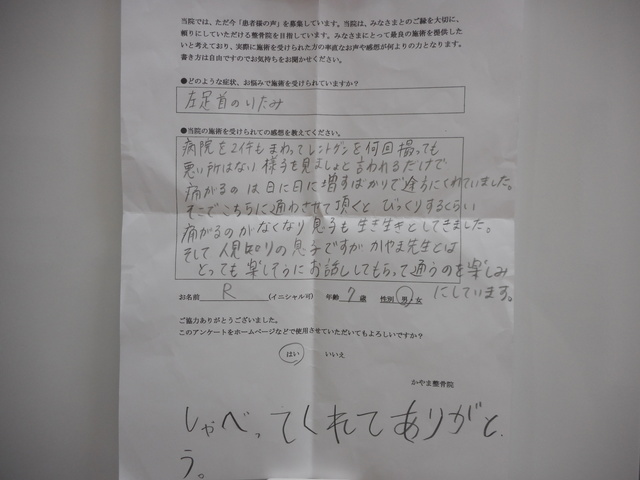 当院では、ただ今「患者様の声」を募集しています。当院は、みなさまとのご縁を大切に、
頼りにしていただける整骨院を目指しています。みなさまにとって最良の施術を提供した
いと考えており、実際に施術を受けられた方の率直なお声や感想が何よりの力となります。
書き方は自由ですのでお気持ちをお聞かせください。
●どのような症状、お悩みで施術を受けられていますか?
左足首のいたみ
●当院の施術を受けられての感想を教えてください。
病院を2件もまわってレントゲンを何回撮っても
悪い所はない様子を見ましょと言われるだけで
痛がるのは日に日に増すばかりで途方にくれていました。
そこでこちらに通わさせて頂くとびっくりするくらい
痛がるのがなくなり息子も生き生きとしてきました。
そして人見知りの息子ですがかやま先生とは
とっても楽しそうにお話ししてもらって通うのを楽しみ
にしています。
お名前 R (イニシャル可) 年齢 7 歳 性別 男・女
ご協力ありがとうございました。
このアンケートをホームページなどで使用させていただいてもよろしいですか?
はい いいえ
かやま整骨院
しゃべってくれてありがと
う。